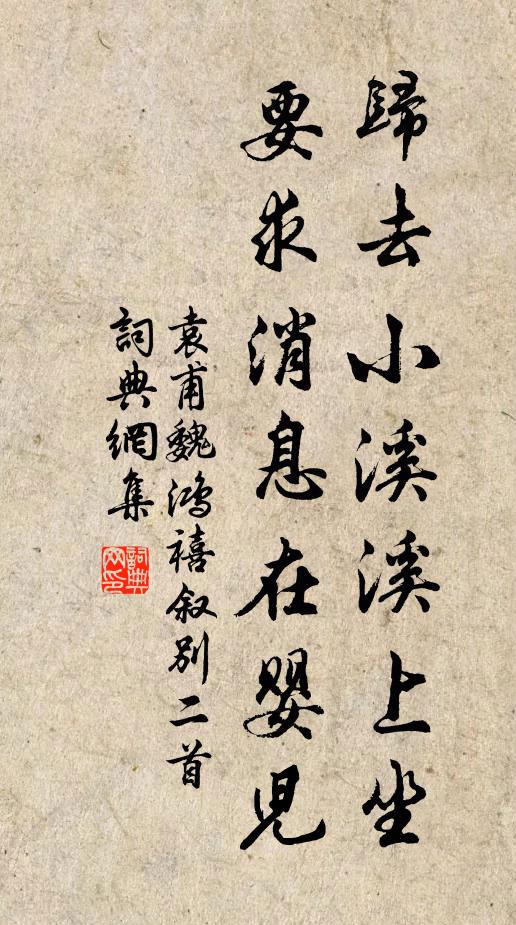 歸去小溪溪上坐
要求消息在嬰児
袁甫魏鴻禧叙别二首
詞典網集
詞典
网印